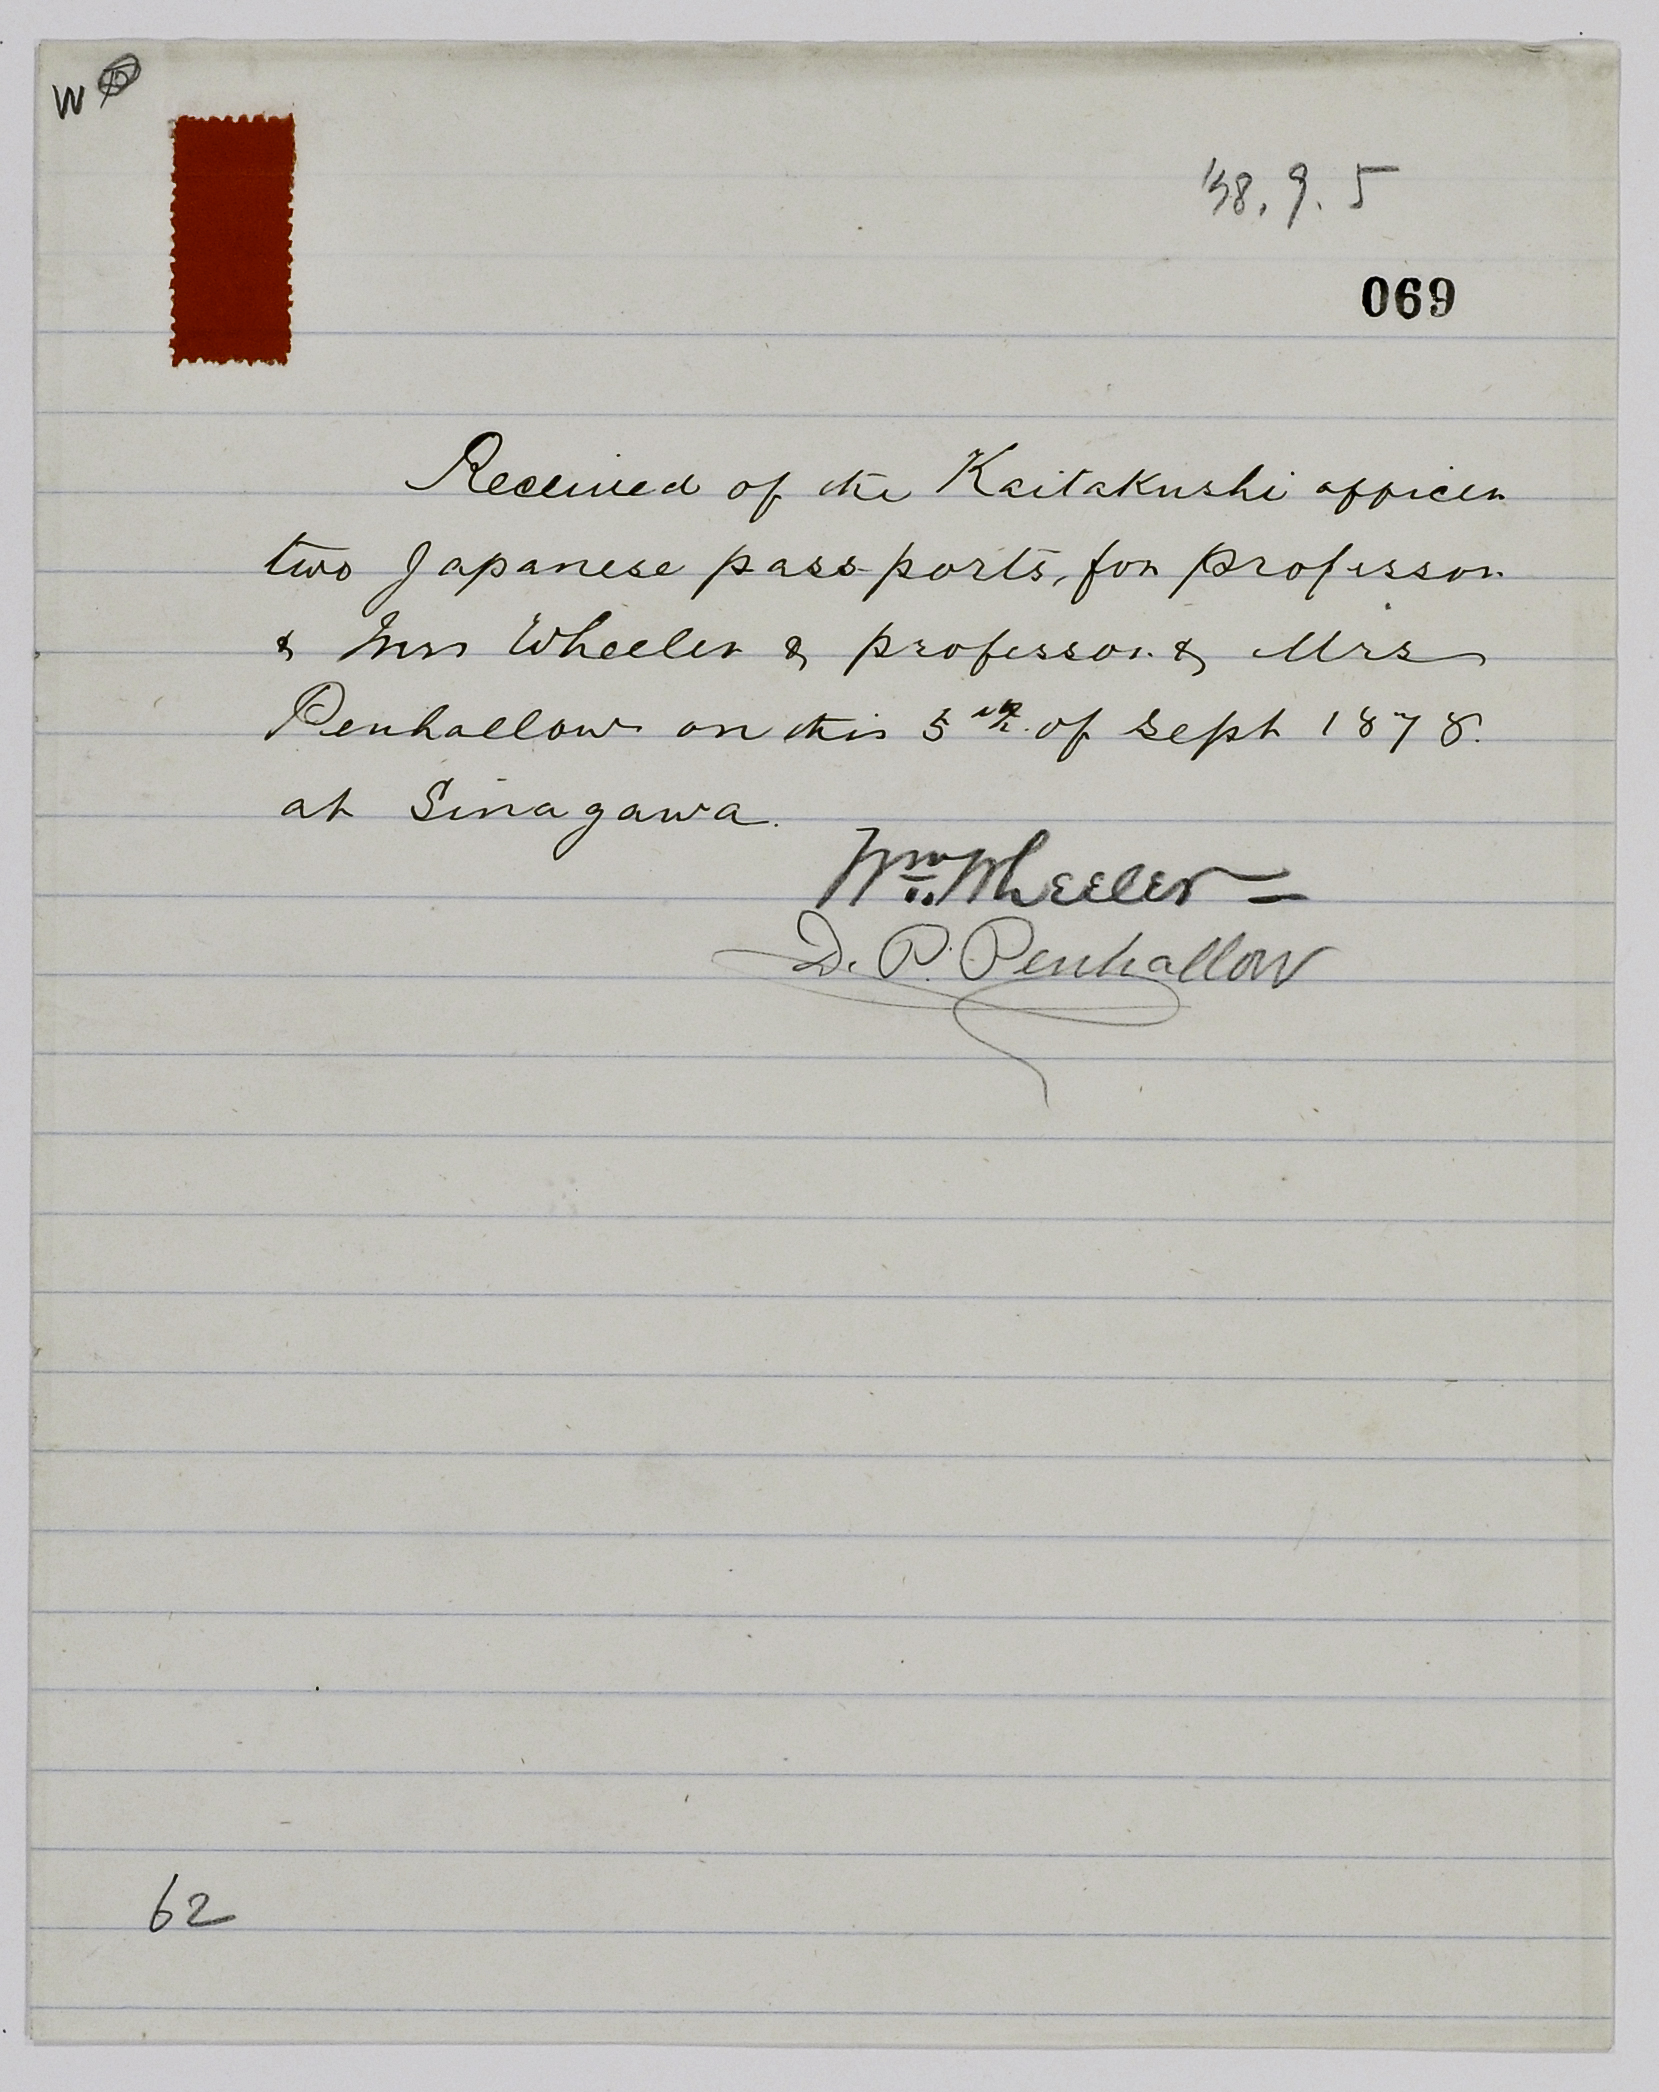 W P
'78. 9. 5
069
Received of the Kaitakushi officer
two Japanese pass-ports, for professor
& Mrs Wheeler & professor & Mrs
Penhallow on this 5th. of Sept 1878.
at Sinagawa.
Wm. Wheeler
D. P. Penhallow
62